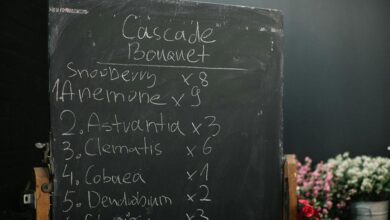 Cascade
Bouquet
Snowberry x 8
1. Anemone x 9
2. Astvantia x 3
3. Clematis x 6
4. Cobaea x 1
5. Dendobium x 2